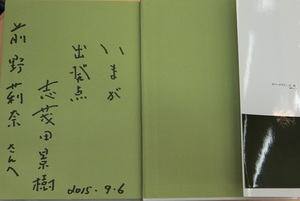 いまが
出発点
志茂田景樹
前野莉奈さんへ
2015.9.6